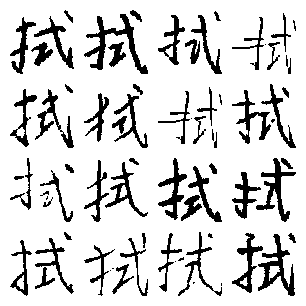 拭拭拭拭
拭拭拭拭
拭拭拭拭
拭拭拭拭